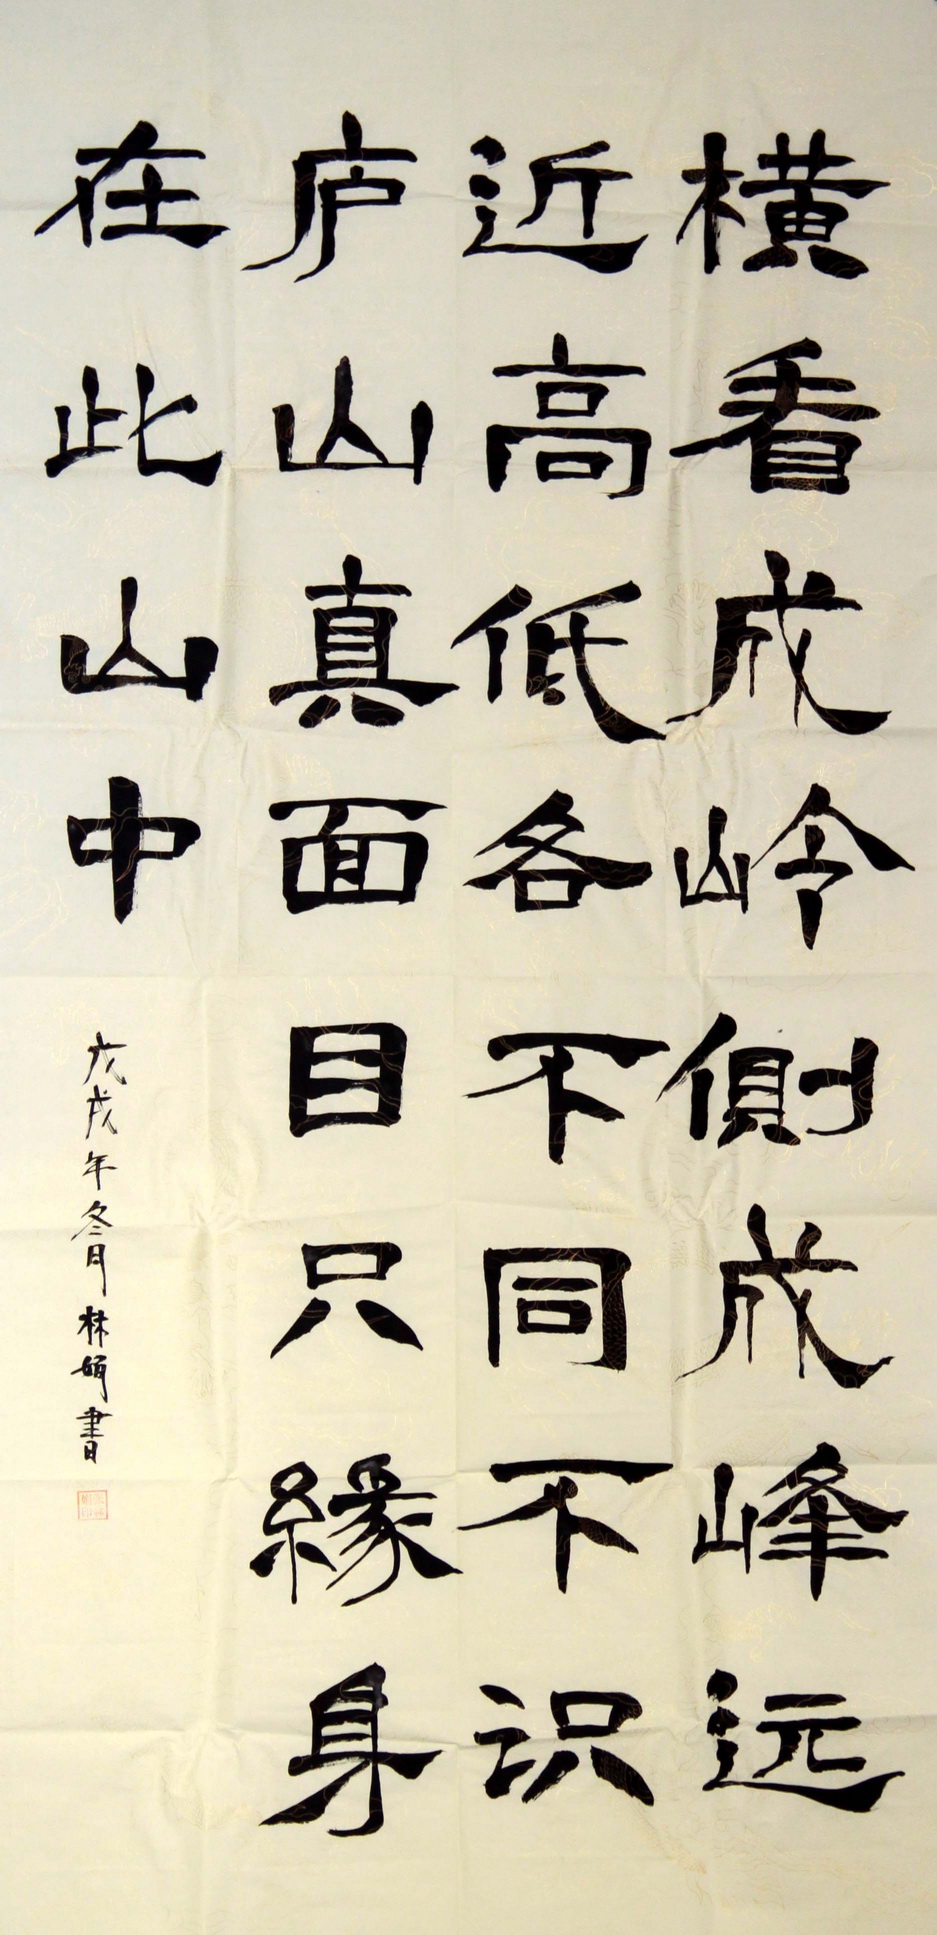 横看成岭侧成峰远
近高低各不同不识
庐山真面目只緣身
在此山中
戊戌年冬月林娟書